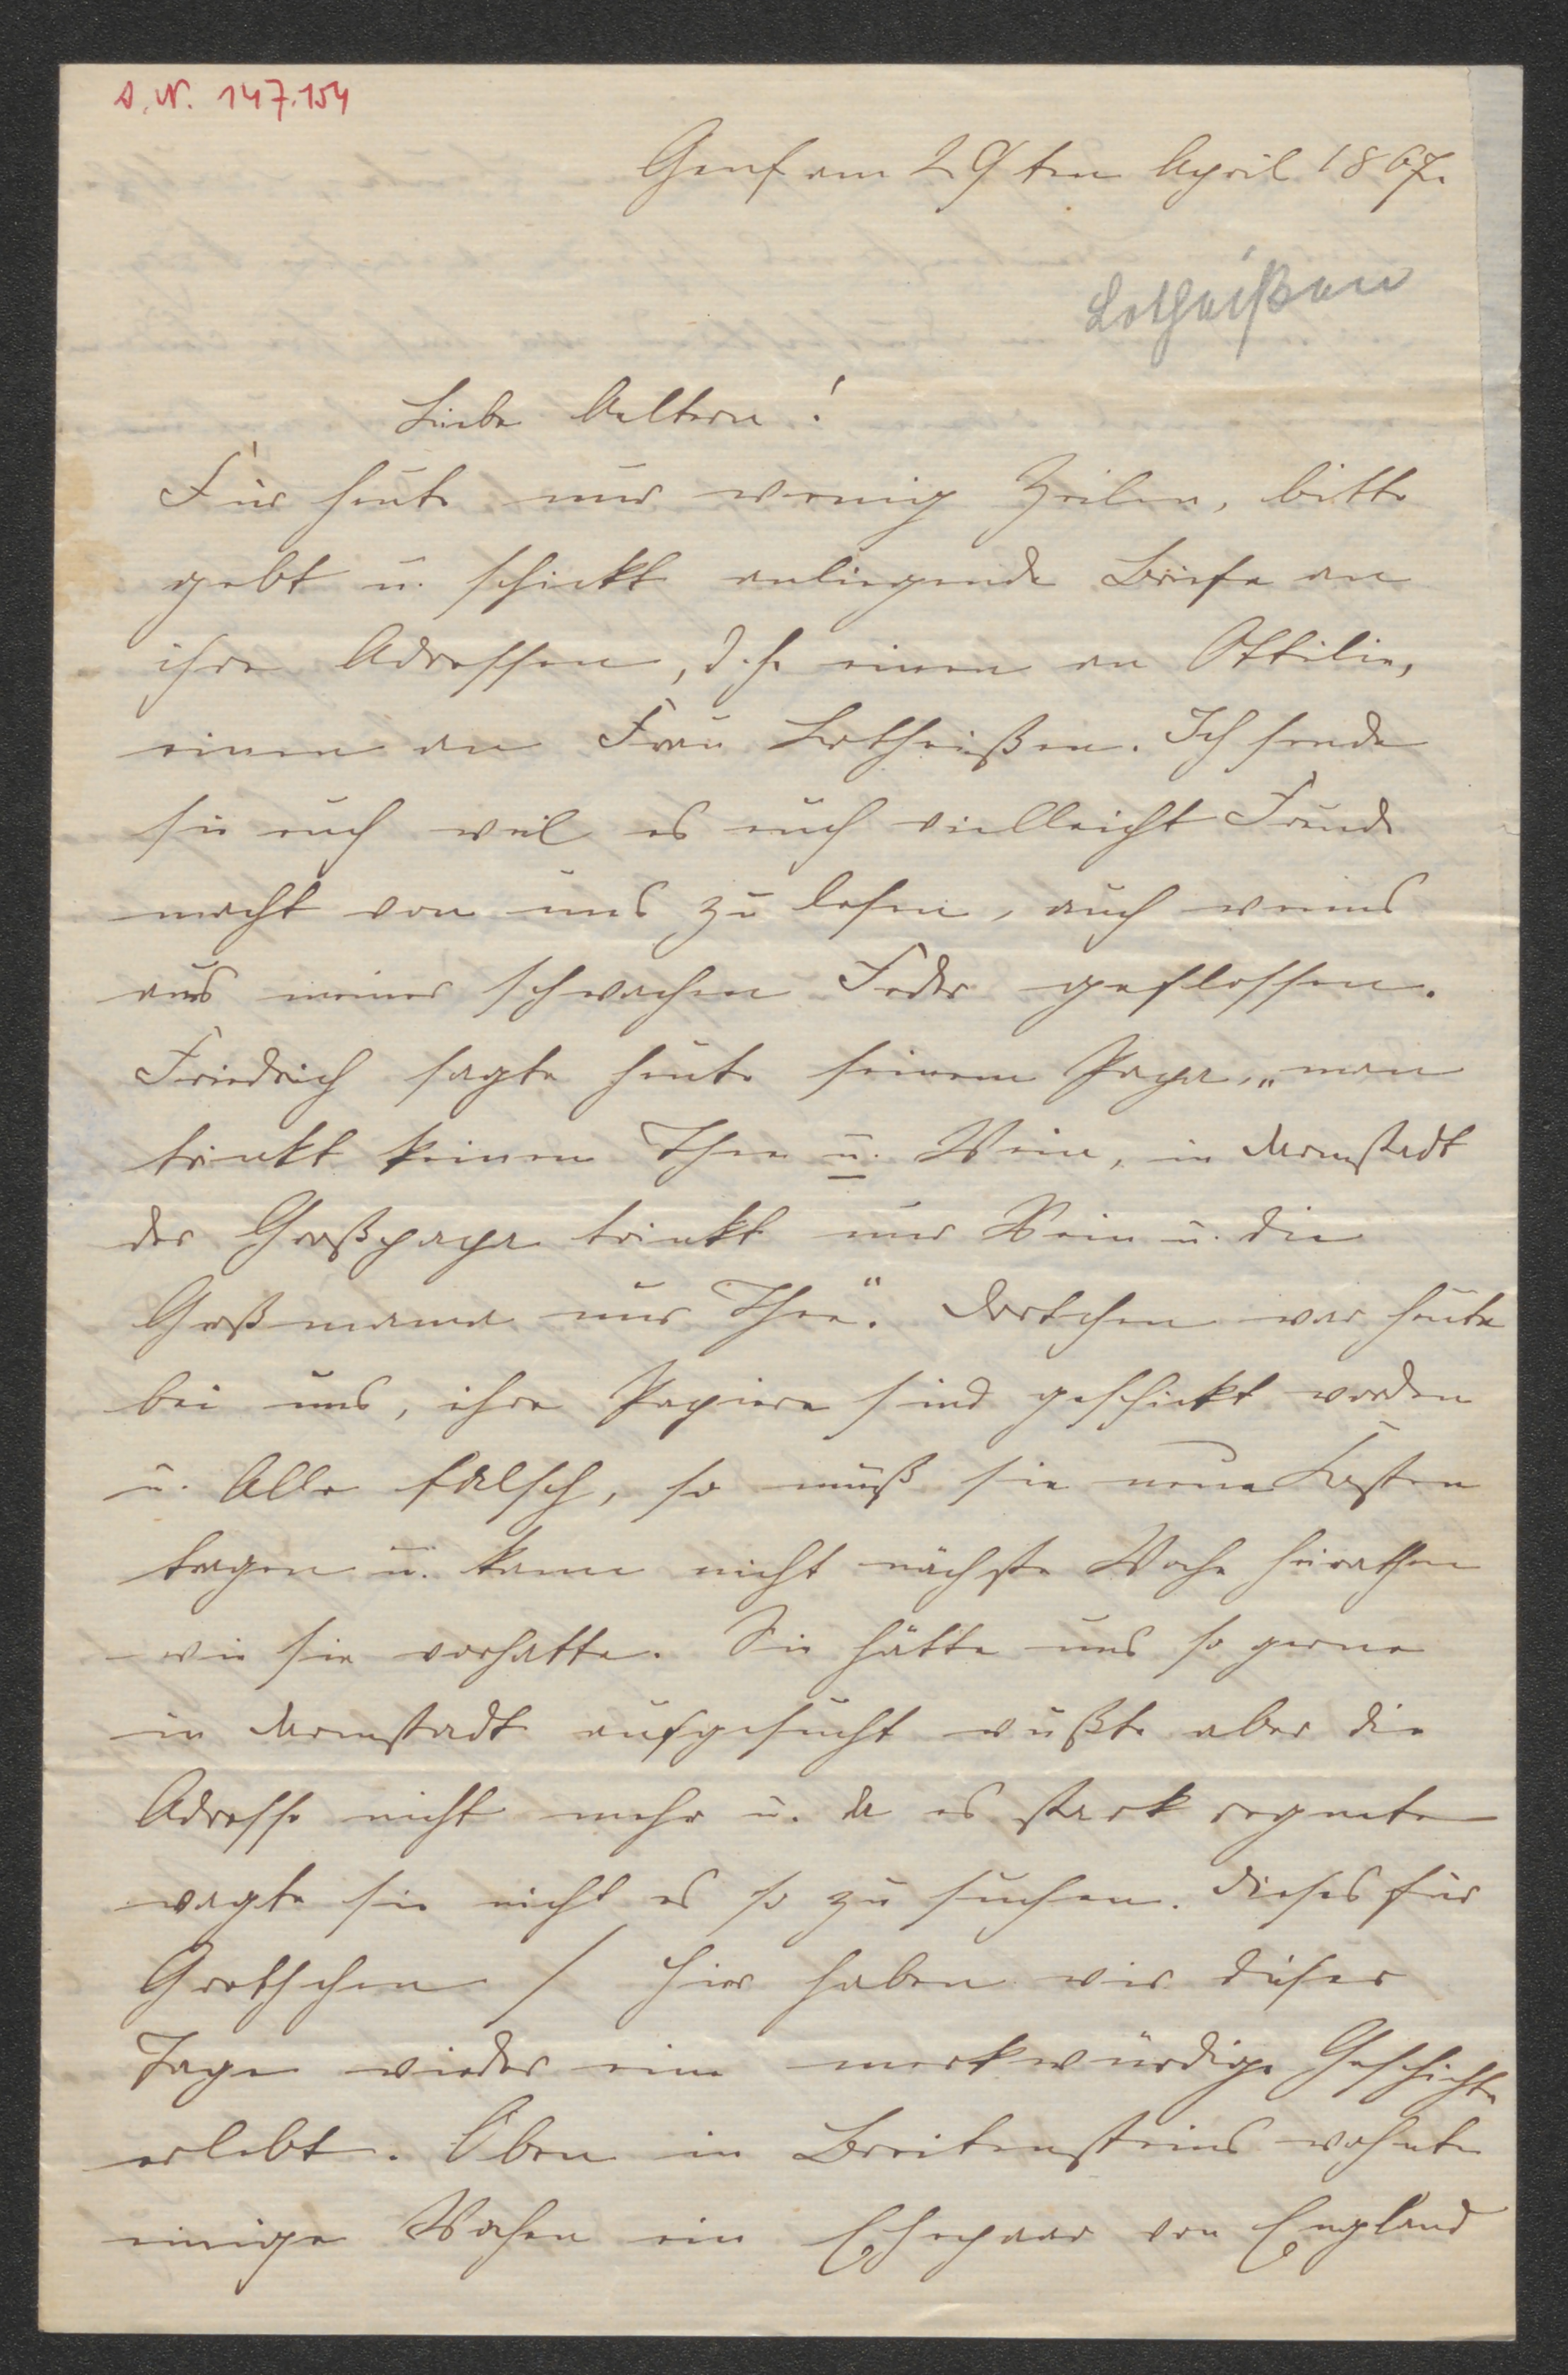 A. N. 147.154
Genf am 29ten April 1867.
Lotheißen
Liebe Aeltern!
Für heute nur wenig Zeilen, bitte
gebt u. schickt anliegende Briefe an
ihre Adressen, d. h. einen an Ottilie,
einen an Frau Lotheißen. Ich sende
sie euch weil es euch vielleicht Freude
macht von uns zu lesen, auch wenns
aus meiner schwachen Feder geflossen.
Friedrich sagte heute seinem Papa, „man
trinkt keinen Thee u. Wein, in Darmstadt
der Großpapa trinkt nur Wein u. die
Großmama nur Thee“. Dortchen war heute
bei uns, ihre Papiere sind geschickt worden
u. Alle falsch, so muß sie neue Kosten
tragen u. kann nicht nächste Woche heirathen
wie sie vorhatte. Sie hätte uns so gerne
in Darmstadt aufgesucht wußte aber die
Adresse nicht mehr u. da es stark regnete
wagte sie nicht es so zu suchen. Dieses für
Gretchen / Hier haben wir dieser
Tage wieder eine merkwürdige Geschichte
erlebt. Oben in Breitensteins wohnte
einige Wochen ein Ehepaar von England